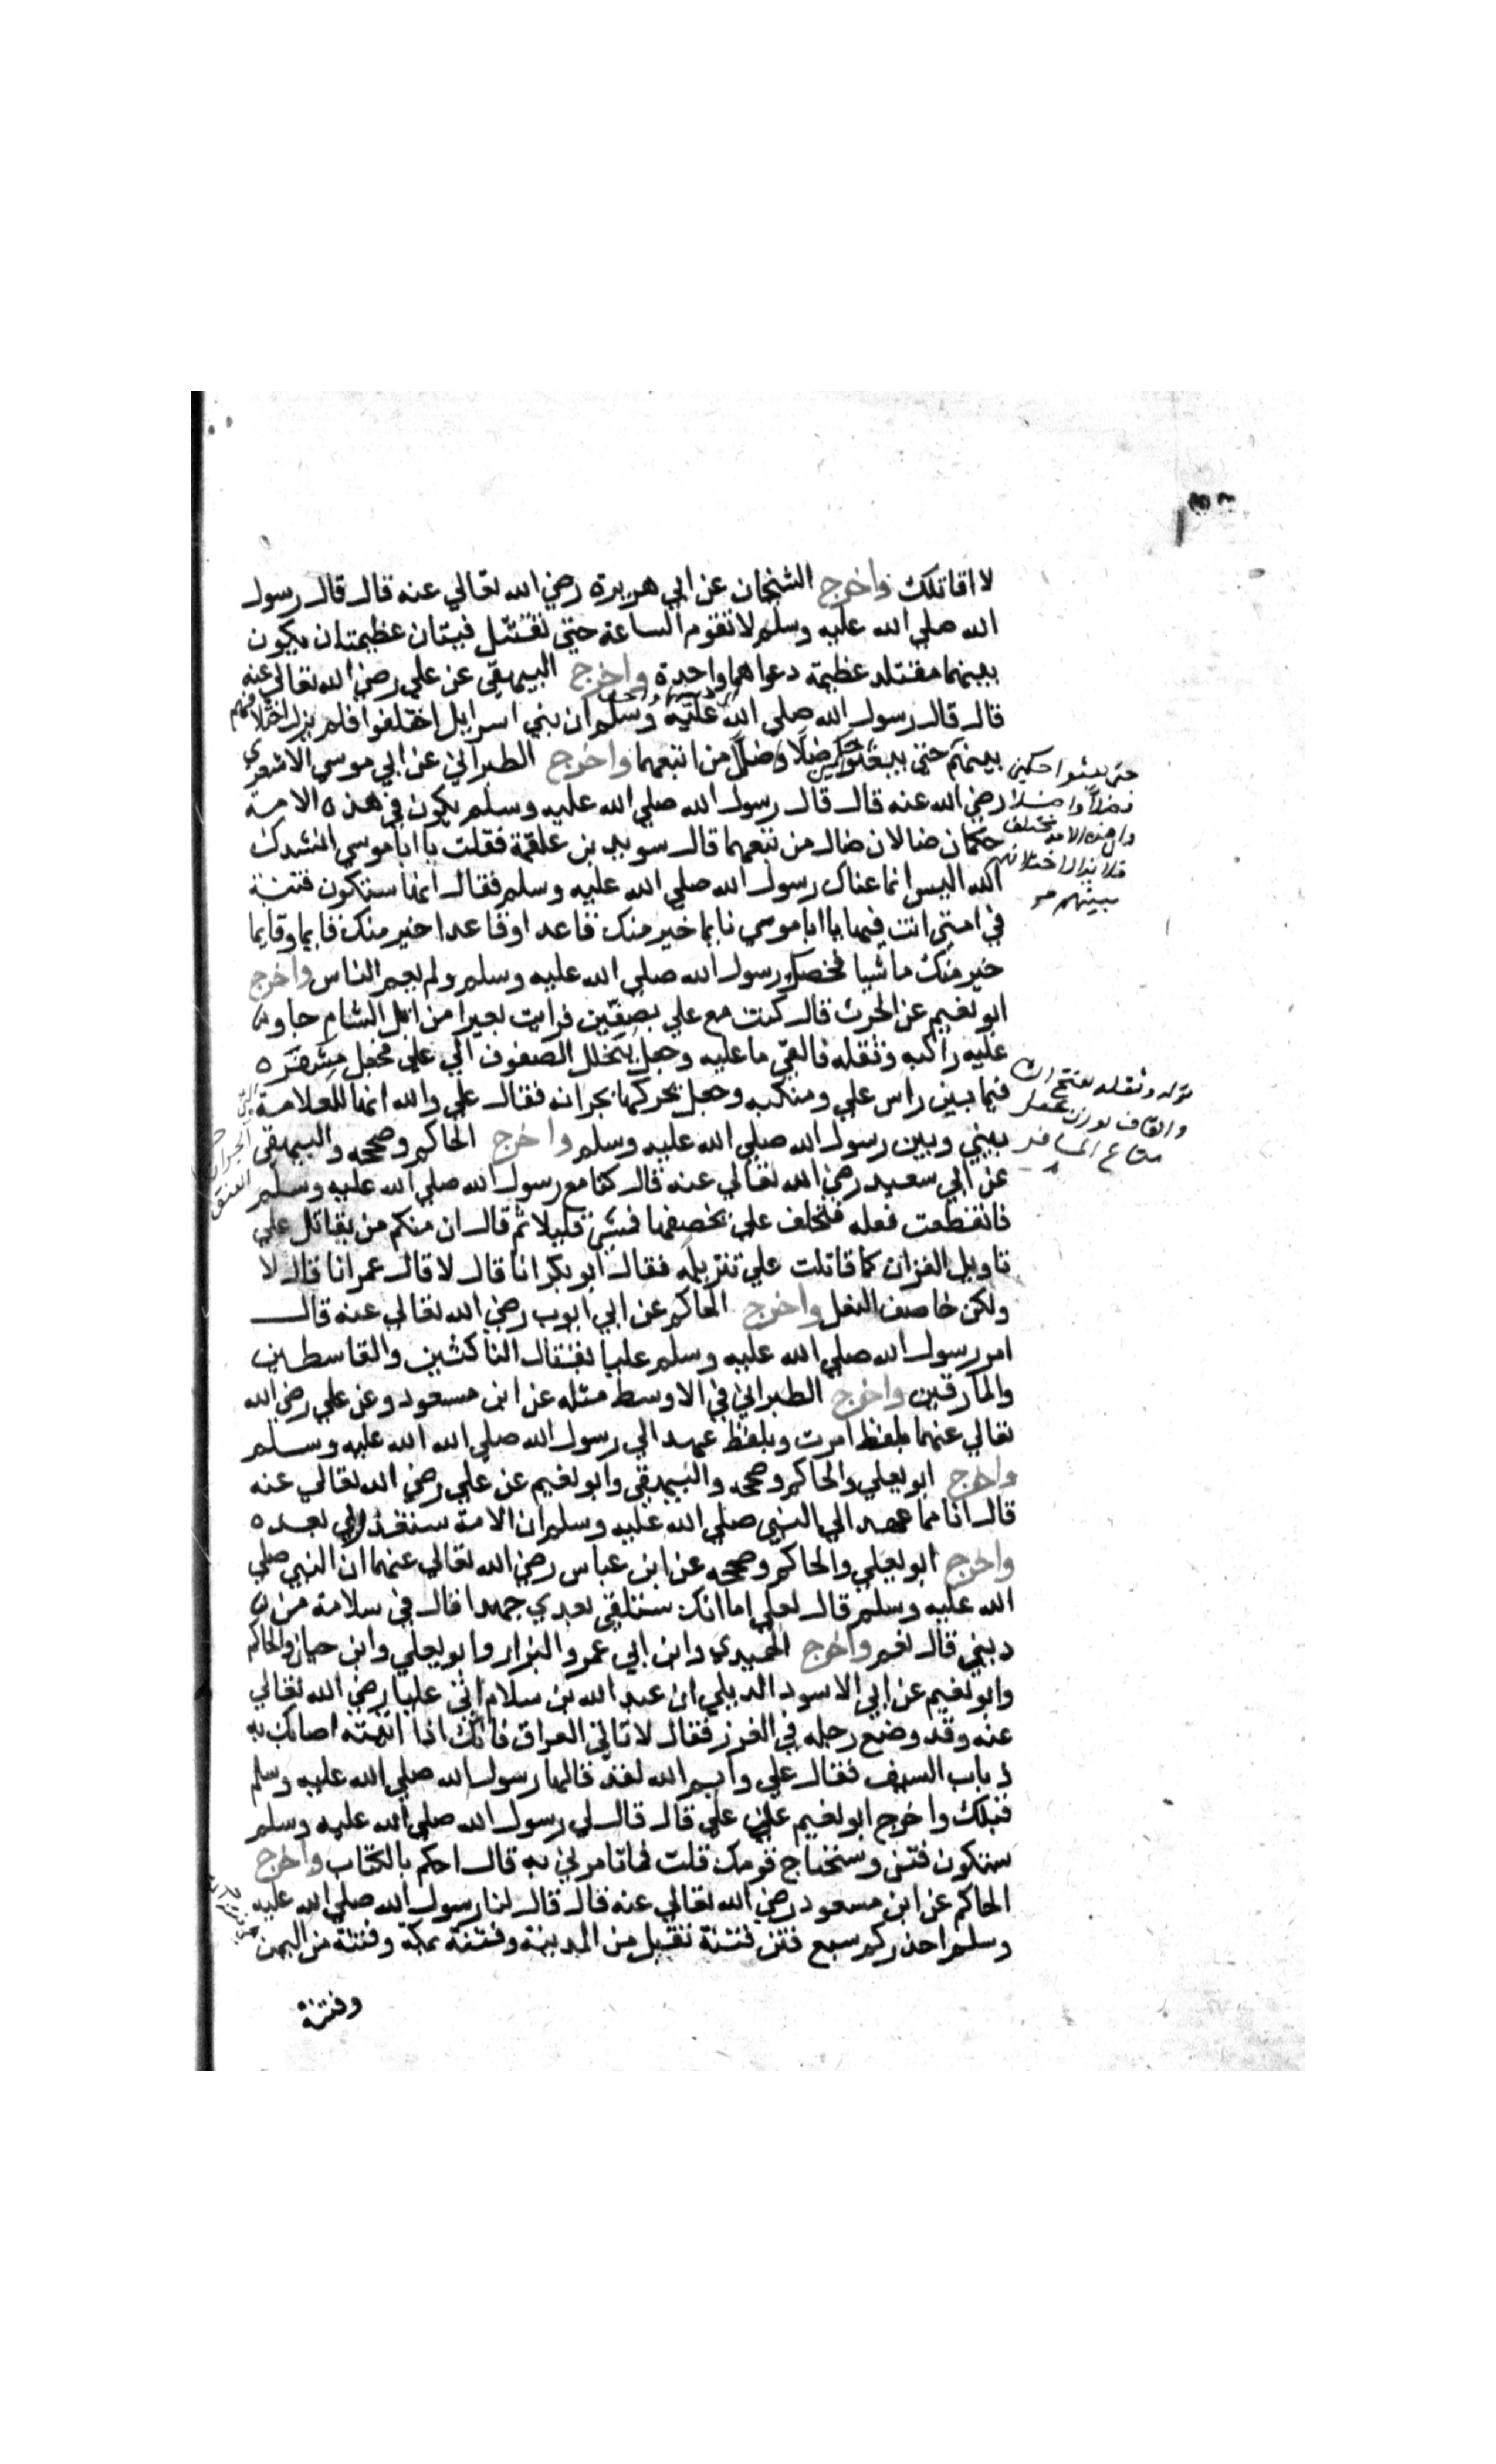 لا اقاتلك واخرج الشيخان عن ابي هريرة رضي الله تعالي عنه قال قال رسول
الله صلي الله عليه وسلم لا تقوم الساعة حتي تقتتل فيتان عظيمتان يكون
بينهما مقتلة عظيمة دعواهما واحدة واخرج البيهقي عن علي رضي الله تعالي عنه
قال قال رسول الله صلي الله عليه وسلم ان بني اسرايل اختلفوا فلم يزل اختلافهم
بينهم حتي يبعثوا حكمين ضلا وضل من اتبعهما واخرج الطبراني عن ابي موسي الاشعري
رضي الله عنه قال قال رسول الله صلي الله عليه وسلم يكون في هذه الامة
حكمان ضالان ضال من تبعهما قال سويد بن علقمة فقلت يا ابا موسي انشدك
الله اليس انما عناك رسول الله صلي الله عليه وسلم فقال انها ستكون فتنة
في امتي انت فيها يا ابا موسي نايما خير منك قاعد اوقاعدا خير منك قايما وقايما
خير منك ماشيا فخصك رسول الله صلي الله عليه وسلم ولم يعم الناس واخرج
ابو نعيم عن الحرث قال كنت مع علي بصفين فرايت بعيرا من ابل الشام جاو
عليه راكبه وثقله فالقي ما عليه وجعل يتخلل الصفوف الي علي فجعل مشفره
فيما بين راس علي ومنكبه وجعل يحركها بجرانه فقال علي والله انها للعلامة
بيني وبين رسول الله صلي الله عليه وسلم واخرج الحاكم وصححه والبيهقي
عن ابي سعيد رضي الله تعالي عنه قال كنا مع رسول الله صلي الله عليه وسلم
فانقطعت نعله فتخلف علي يخصفها فمشي قليلا ثم قال ان منكم من يقاتل علي
تاويل القران كما قاتلت علي تنزيله فقال ابو بكر انا قال لا قال عمر انا قال لا
ولكن خاصف النعل واخرج الحاكم عن ابي ايوب رضي الله تعالي عنه قال
امر رسول الله صلي الله عليه وسلم عليا بقتال الناكثين والقاسطين
والمارقين واخرج الطبراني في الاوسط مثله عن ابن مسعود وعن علي رضي الله
تعالي عنهما بلفظ امرت وبلفظ عهد الي رسول الله صلي الله الله عليه وسلم
واخرج ابو يعلي والحاكم وصححه والبيهقي وابو نعيم عن علي رضي الله تعالي عنه
قال انا مما عهد الي النبي صلي الله عليه وسلم ان الامة ستغدر بي بعده
واخرج ابو يعلي والحاكم وصححه عن ابن عباس رضي الله تعالي عنهما ان النبي صلي
الله عليه وسلم قال لعلي اما انك ستلقي بعدي جهدا قال في سلامة من
ديني قال نعم واخرج الحميدي وابن ابي عمر والبزار وابو يعلي وابن حبان والحاكم
وابو نعيم عن ابي الاسود الديلي ان عبد الله بن سلام اتي عليا رضي الله تعالي
عنه وقد وضع رجله في الغرز فقال لا تاتي العراق فانك اذا اتيته اصابك به
ذباب السيف فقال علي وايم الله لقد قالها رسول الله صلي الله عليه وسلم
قبلك واخرج ابو نعيم عن علي قال قال لي رسول الله صلي الله عليه وسلم
ستكون فتن وستحتاج قومك قلت فما تامرني به قال احكم بالكتاب واخرج
الحاكم عن ابن مسعود رضي الله تعالي عنه قال قال لنا رسول الله صلي الله عليه
وسلم احذركم سبع فتن فتنة تقبل من المدينة وفتنة بمكة وفتنة من اليمن
وفتنة
حتي يبعثوا حكمين
فضلا واضلا
وان هذه الامة مختلف
فلا يزال اختلافهم
بينهم
قوله وثقله بفتح الثا
والقاف بوزن عمل
متاع المسافر
الجران
العنق